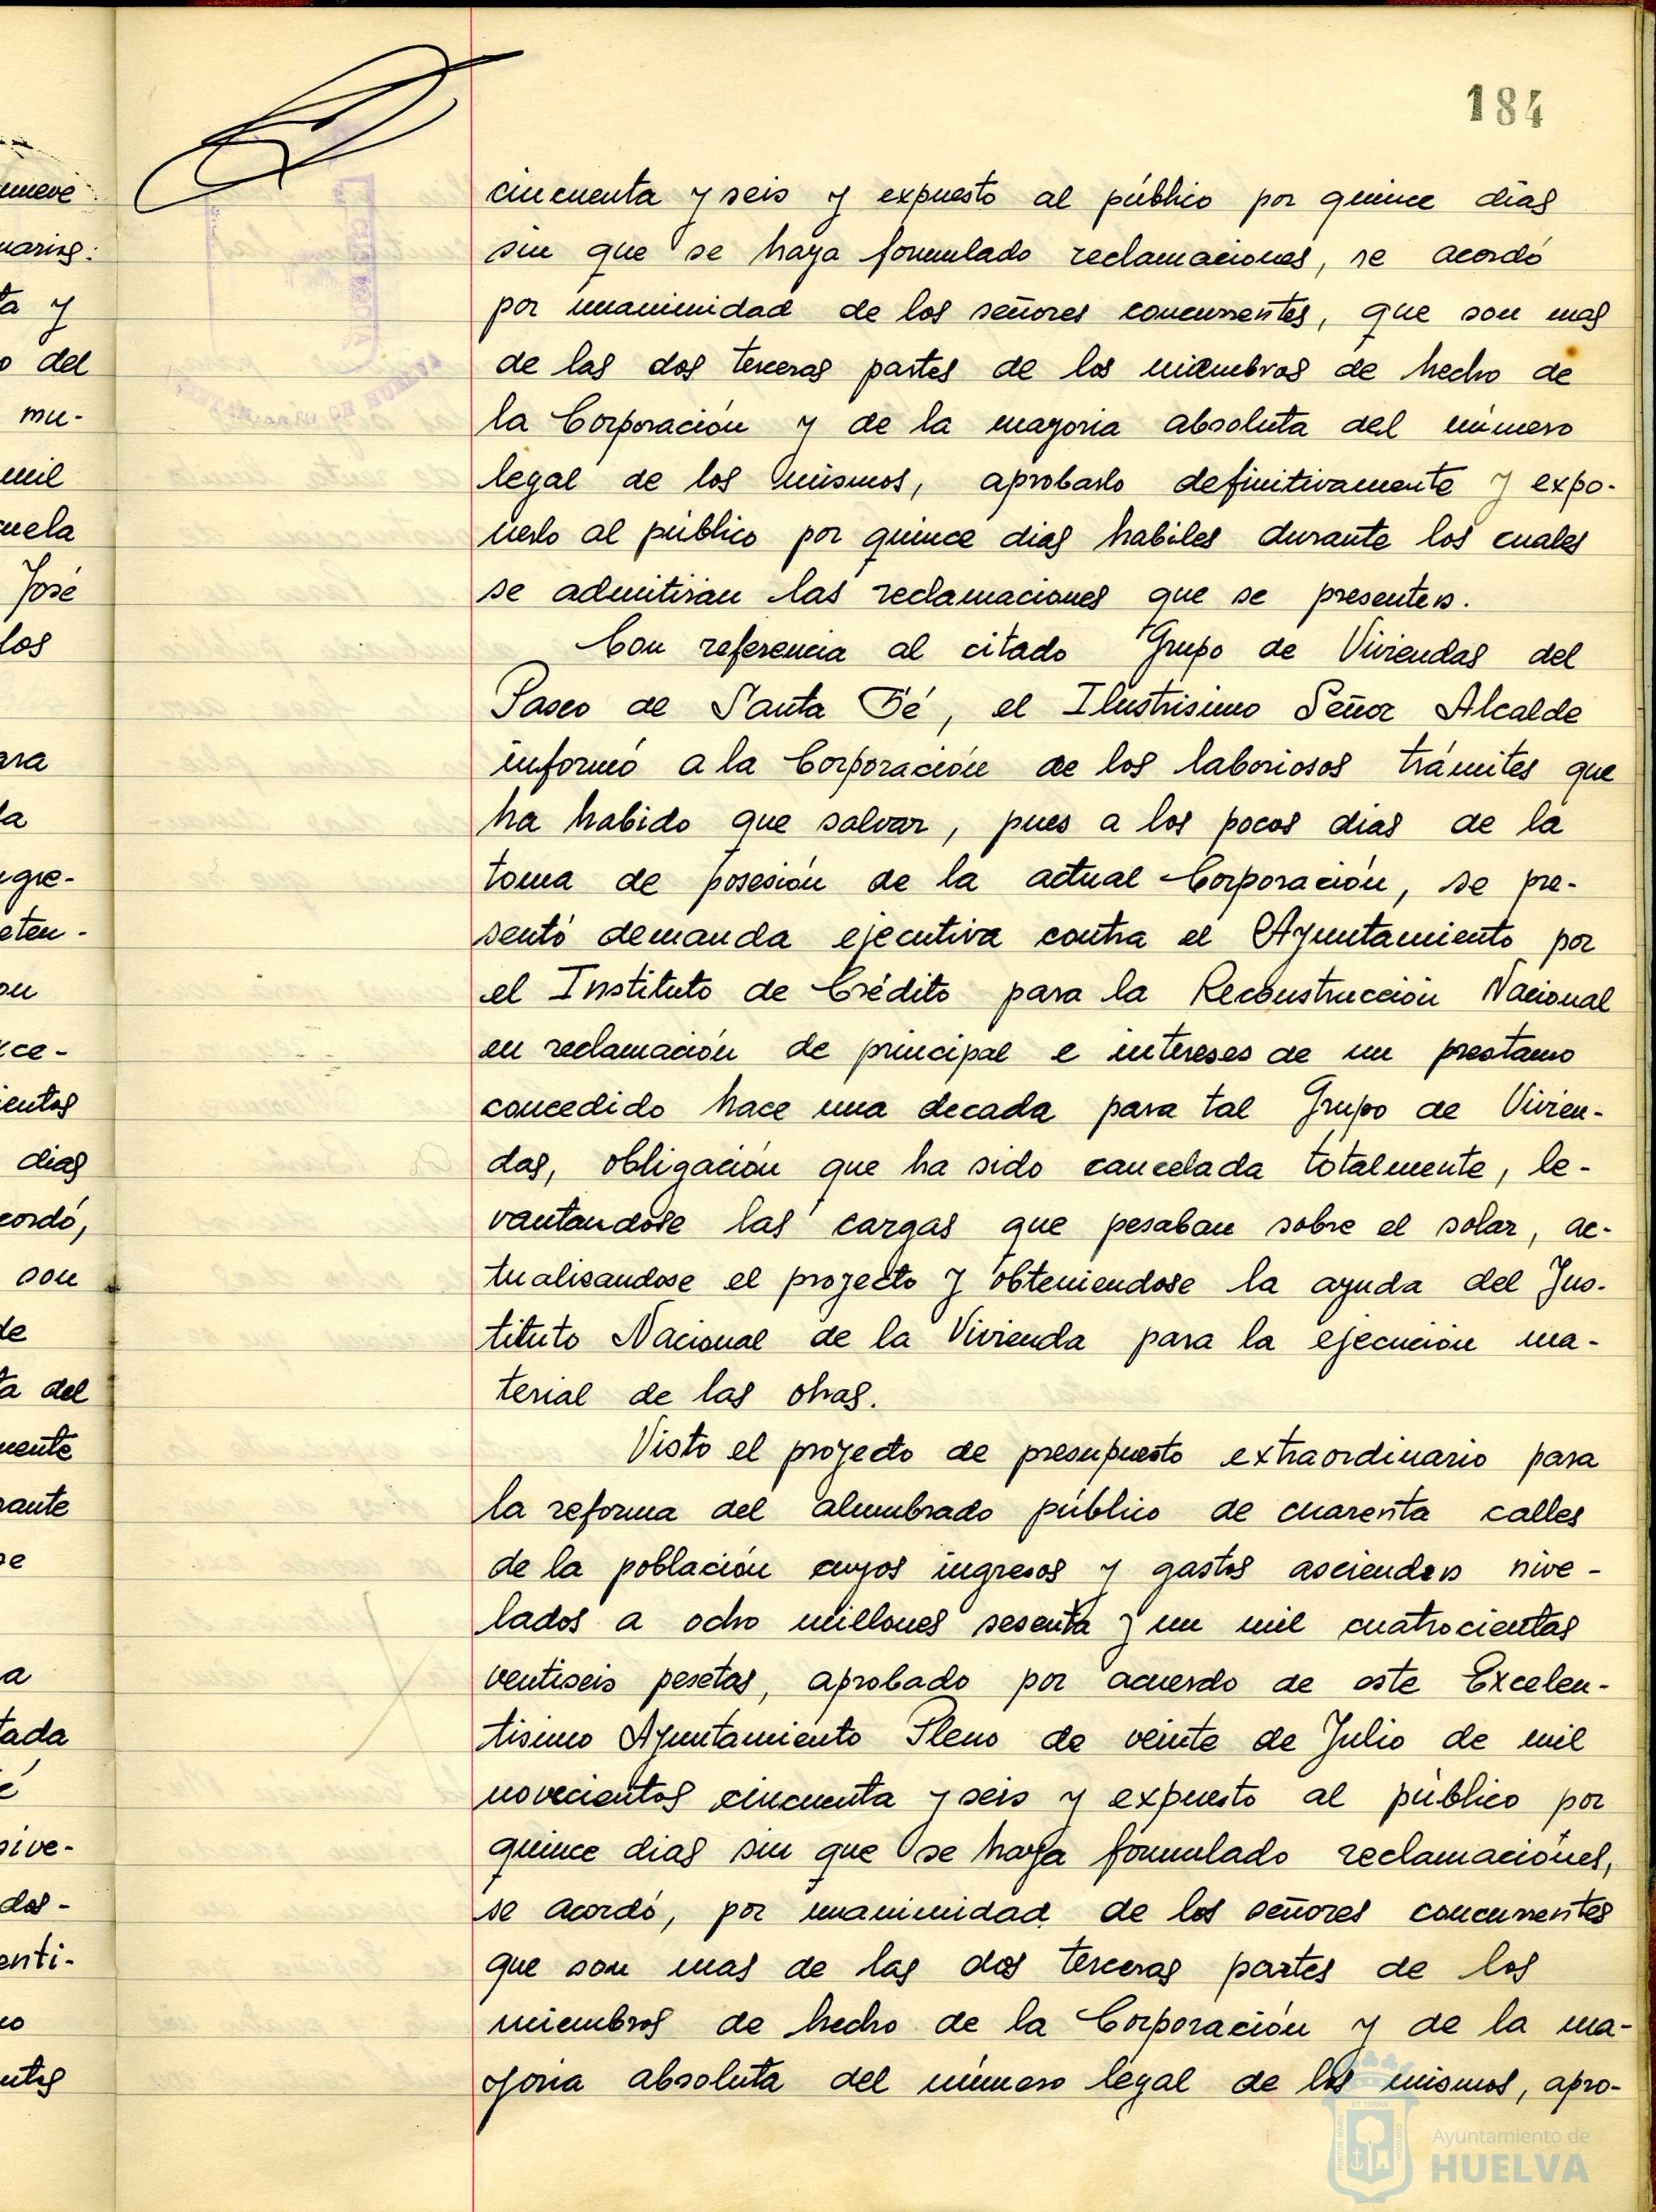 184
cincuenta y seis y expuesto al público por quince dias
sin que se haya formulado reclamaciones, se acordó
por unanimidad de los señores concurrentes, que son mas
de las dos terceras partes de los miembros de hecho de
la Corporación y de la mayoria absoluta del número
legal de los mismos, aprobarlo definitivamente y expo-
nerlo al público por quince dias habiles durante los cuales
se admitirán las reclamaciones que se presenten.
Con referencia al citado Grupo de Viviendas del
Paseo de Santa Fé, el Ilustrisimo Señor Alcalde
informó a la Corporación de los laboriosos trámites que
ha habido que salvar, pues a los pocos dias de la
toma de posesión de la actual Corporación, se pre-
sentó demanda ejecutiva contra el Ayuntamiento por
el Instituto de Crédito para la Reconstrucción Nacional
en reclamación de principal e intereses de un prestamo
concedido hace una decada para tal Grupo de Vivien-
das, obligación que ha sido cancelada totalmente, le-
vantandose las cargas que pesaban sobre el solar, ac-
tualisandose el proyecto y obteniendose la ayuda del Ins-
tituto Nacional de la Vivienda para la ejecución ma-
terial de las obras.
Visto el proyecto de presupuesto extraordinario para
la reforma del alumbrado público de cuarenta calles
de la población cuyos ingresos y gastos ascienden nive-
lados a ocho millones sesenta y un mil cuatrocientas
ventiseis pesetas, aprobado por acuerdo de este Excelen-
tisimo Ayuntamiento Pleno de veinte de Julio de mil
novecientos cincuenta y seis y expuesto al público por
quince dias sin que se haya formulado reclamaciónes,
se acordó, por unanimidad de los señores concurrentes
que son mas de las dos terceras partes de los
miembros de hecho de la Corporación y de la ma-
yoria absoluta del número legal de los mismos, apro-
Ayuntamiento de
HUELVA